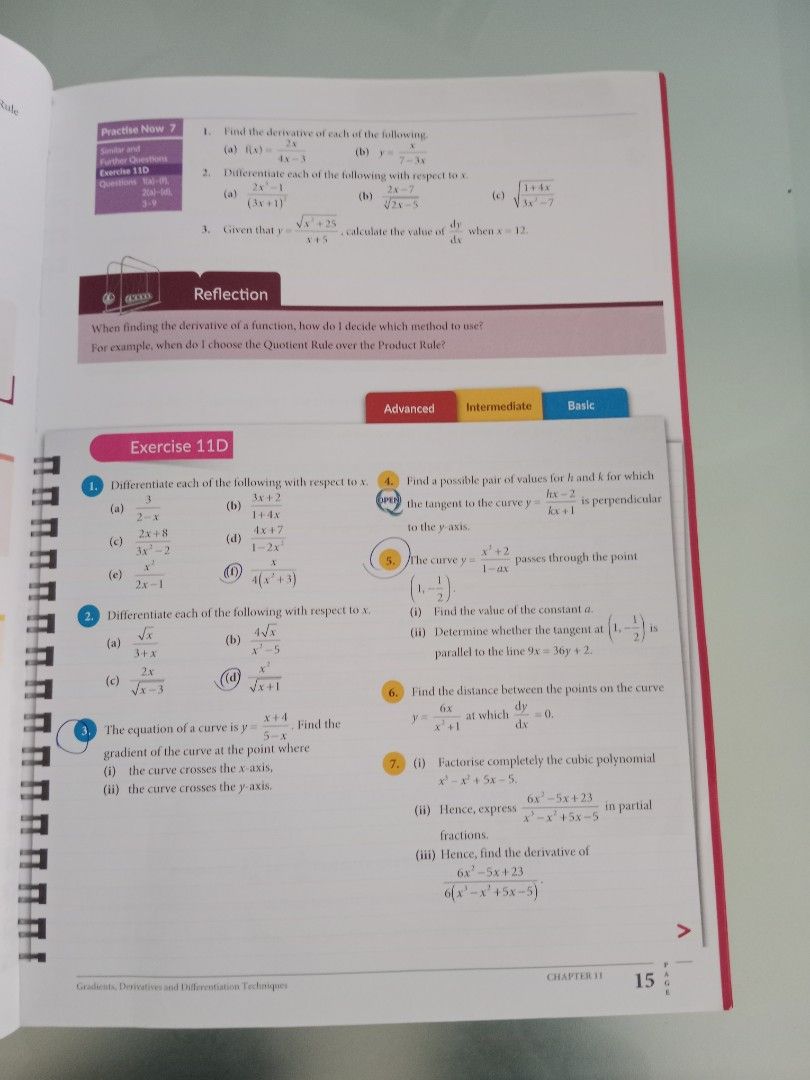 Rule
Practise Now 7
Similar and
Further Questions
Exercise 11D
Questions 1(a)-(f),
2(a)-(d),
3-9
1. Find the derivative of each of the following.
(a) f(x) = 2x/(4x − 3) (b) y = x/(7 − 3x)
2. Differentiate each of the following with respect to x.
(a) (2x³ − 1)/(3x + 1)² (b) (2x − 7)/√(2x − 5) (c) √((1 + 4x)/(3x² − 7))
3. Given that y = √(x² + 25)/(x + 5), calculate the value of dy/dx when x = 12.
Reflection
When finding the derivative of a function, how do I decide which method to use?
For example, when do I choose the Quotient Rule over the Product Rule?
Advanced Intermediate Basic
Exercise 11D
1. Differentiate each of the following with respect to x.
(a) 3/(2 − x) (b) (3x + 2)/(1 + 4x)
(c) (2x + 8)/(3x² − 2) (d) (4x + 7)/(1 − 2x²)
(e) x²/(2x − 1) (f) x/(4(x² + 3))
2. Differentiate each of the following with respect to x.
(a) √x/(3 + x) (b) 4√x/(x² − 5)
(c) 2x/√(x − 3) (d) x²/√(x + 1)
3. The equation of a curve is y = (x + 4)/(5 − x). Find the
gradient of the curve at the point where
(i) the curve crosses the x-axis,
(ii) the curve crosses the y-axis.
4. Find a possible pair of values for h and k for which
OPEN the tangent to the curve y = (hx − 2)/(kx + 1) is perpendicular
to the y-axis.
5. The curve y = (x² + 2)/(1 − ax) passes through the point
(1, −1/2).
(i) Find the value of the constant a.
(ii) Determine whether the tangent at (1, −1/2) is
parallel to the line 9x = 36y + 2.
6. Find the distance between the points on the curve
y = 6x/(x² + 1) at which dy/dx = 0.
7. (i) Factorise completely the cubic polynomial
x³ − x² + 5x − 5.
(ii) Hence, express (6x² − 5x + 23)/(x³ − x² + 5x − 5) in partial
fractions.
(iii) Hence, find the derivative of
(6x² − 5x + 23)/(6(x³ − x² + 5x − 5)).
>
Gradients, Derivatives and Differentiation Techniques
CHAPTER 11
15
PAGE